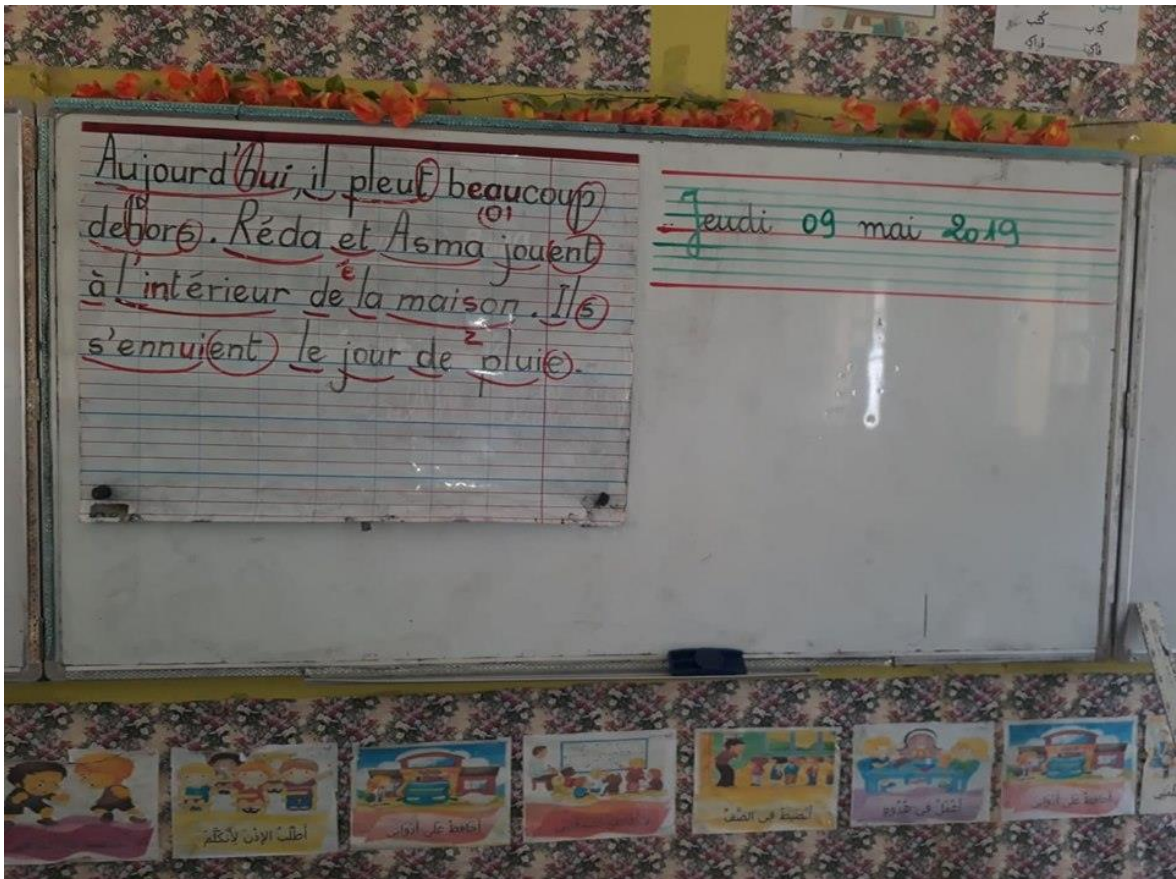 Aujourd'hui, il pleut beaucoup
(o)
dehors. Réda et Asma jouent
à l'intérieur de la maison. Ils
s'ennuient le jour de pluie.
Jeudi 09 mai 2019
أطلب الإذن لأتكلم
أحافظ على أدواتي
أنضبط في الصف
أحافظ على أدواتي